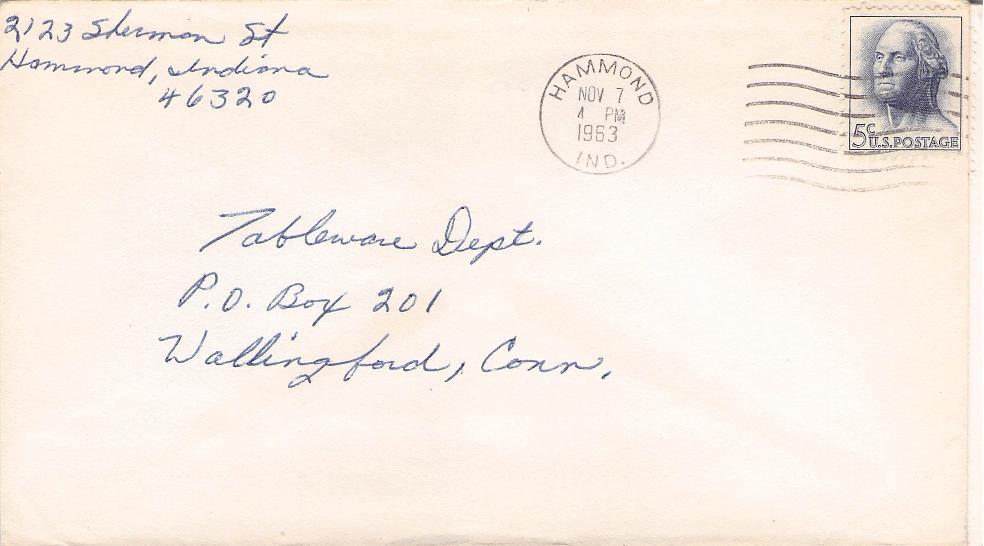 2123 Sherman St
Hammond, Indiana
46320
HAMMOND
NOV 7
4 PM
1963
IND.
5c
U.S. POSTAGE
Tableware Dept.
P.O. Box 201
Wallingford, Conn.